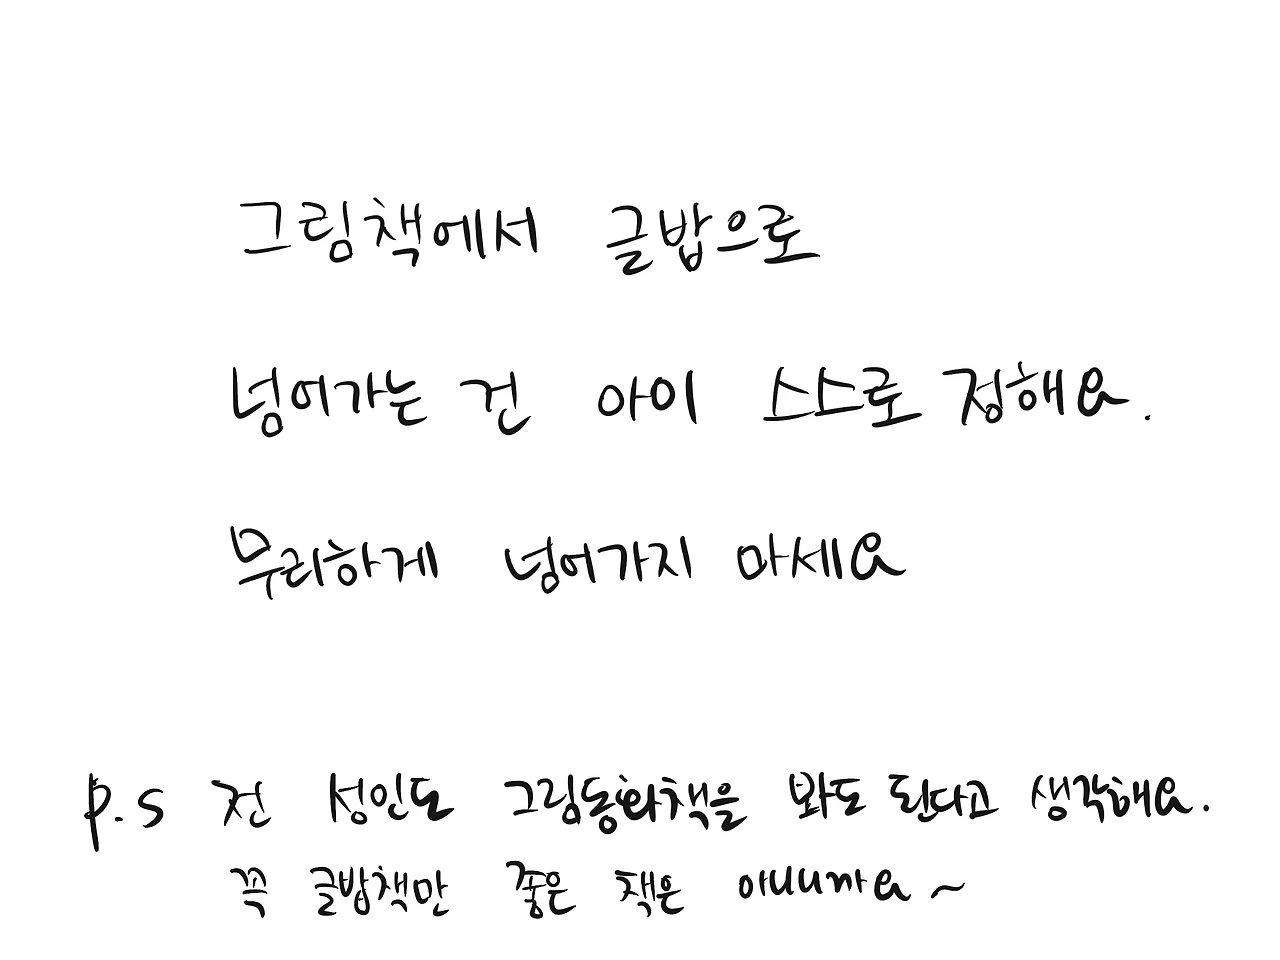 그림책에서 글밥으로
넘어가는 건 아이 스스로 정해요.
무리하게 넘어가지 마세요
p.s 전 성인도 그림동화책을 봐도 된다고 생각해요.
꼭 글밥책만 좋은 책은 아니니까요~